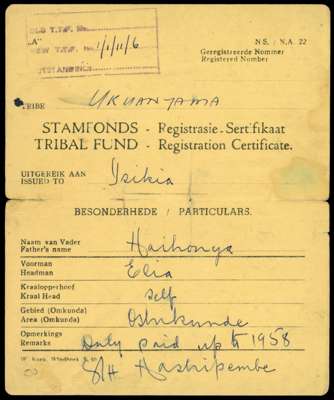 OLD T.T.F. No.
"A"
NEW T.T.F. No. 1/1/11/6
OUTSTANDINGS
N.S. / N.A. 22
Geregistreerde Nommer
Registered Number
TRIBE UKUANYAMA
STAMFONDS - Registrasie-Sertifikaat
TRIBAL FUND - Registration Certificate.
UITGEREIK AAN
ISSUED TO Isikia
BESONDERHEDE / PARTICULARS.
Naam van Vader
Father's name Haihonya
Voorman
Headman Elia
Kraalopperhoof
Kraal Head self
Gebied (Omkunda)
Area (Omkunda) Oshikunde
Opmerkings
Remarks Only paid up to 1958
S/H Hashipembe